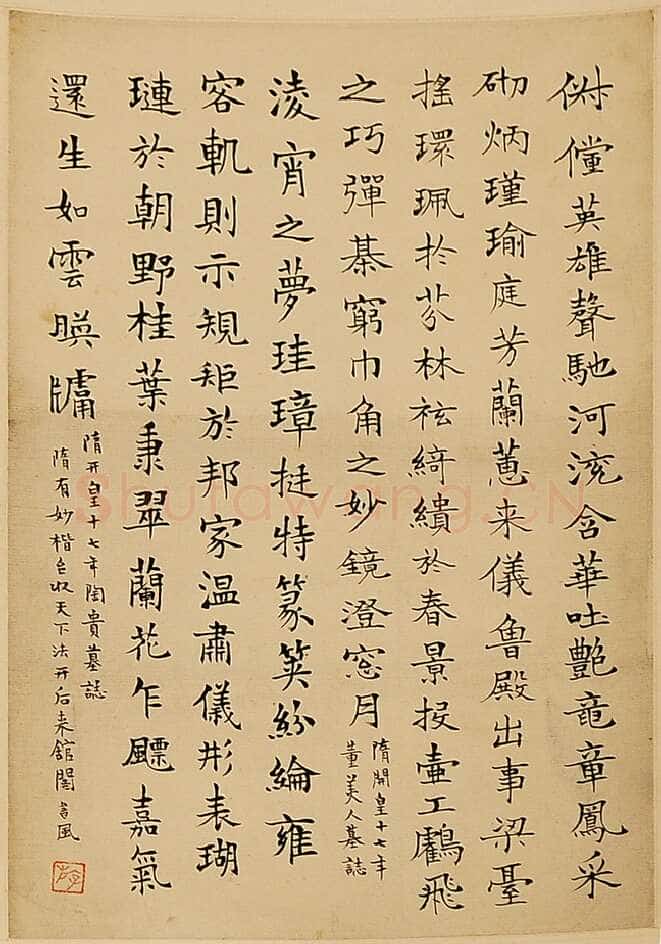 俶儻英雄聲馳河浣含華吐艷竜章鳳采
砌炳瑾瑜庭芳蘭蕙来儀魯殿出事梁臺
搖環珮於芬林袨綺繢於春景投壷工鶴飛
之巧彈棊窮巾角之妙鏡澄窓月
隋開皇十七年
董美人墓誌
淩宵之夢珪璋挺特篆筴紛綸雍
容軌則示規矩於邦家温肅儀形表瑚
璉於朝野桂葉秉翠蘭花乍飄嘉氣
還生如雲暎牖
隋开皇十七年陶貴墓誌
隋有妙楷收天下法开后来館閣書風
Shufawang.CN